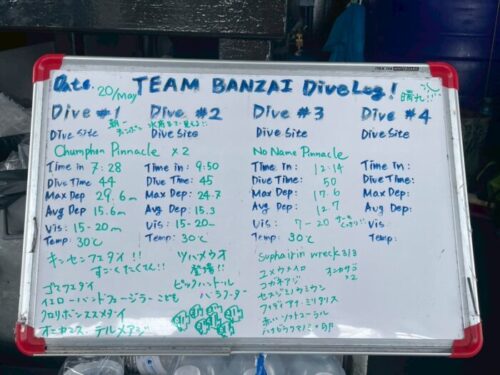 Date. 20/May TEAM BANZAI Dive Log! 晴れ!!
Dive #1 Dive #2 Dive #3 Dive #4
Dive Site Dive Site Dive Site Dive Site
Chumphon Pinnacle × 2 No Name Pinnacle
Time in 7:28 Time in 9:50 Time in: 12:14 Time in:
Dive Time 44 Dive Time: 45 Dive Time: 50 Dive Time:
Max Dep 29.6m Max Dep: 24.7 Max Dep: 17.6 Max Dep:
Avg Dep 15.6m Avg Dep: 15.3 Avg Dep: 12.7 Avg Dep:
Vis: 15-20m Vis: 15-20m Vis: 7-20 Vis:
Temp: 30℃ Temp: 30℃ Temp: 30℃ Temp:
キンセンフエダイ!! ツバメウオ Suphairin wreck
すごくたくさん!! 登場!! ユメウメイロ
ゴマフエダイ ビックバントル コガネアジ
イエローバンドフュージラー こども バラクーダー
クロリボンスズメダイ
オーカンス テルメアジ